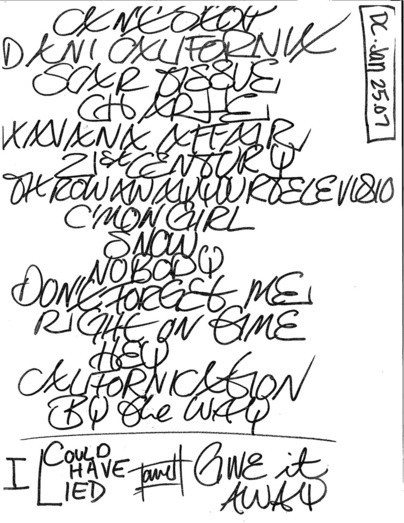 CAN'T STOP
DANI CALIFORNIA
SCAR TISSUE
CHARLIE
HAVANA AFFAIR
21st CENTURY
THROW AWAY YOUR TELEVISIO
C'MON GIRL
SNOW
NOBODY
DON'T FORGET ME
RIGHT ON TIME
HEY
CALIFORNICATION
BY the WAY
I COULD HAVE LIED and GIVE it AWAY
DC. Jan 25.07